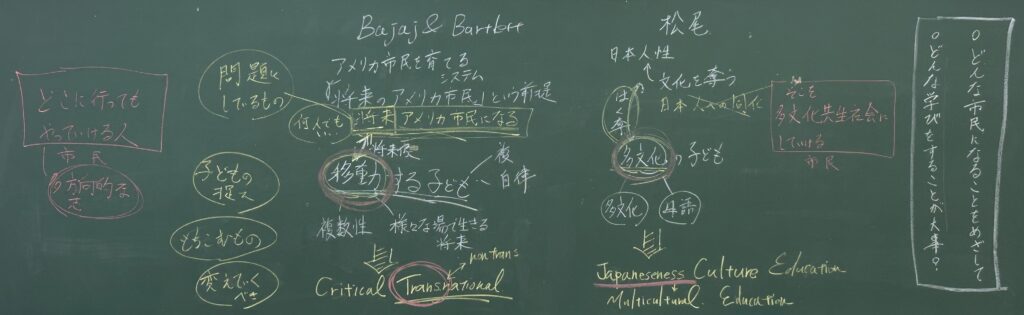 どこに行っても
やっていける人
市民
多方向的な
問題と
しているもの
子どもの
捉え
もちこむもの
変えていく
べき
Bajaj & Bartlett
アメリカ市民を育てる
システム
「将来のアメリカ市民」という前提
何人でも
いい
将来 アメリカ市民になる
移動する子ども
後
自体
複数性
様々な場で生きる
将来
non trans
Critical Transnational
松尾
日本人性
文化を奪う
日本人への同化
はく奪
多文化の子ども
多文化
母語
Japaneseness Culture Education
Multicultural. Education
そこを
多文化共生社会に
していける
市民
○どんな市民になることをめざして
○どんな学びをすることが大事?